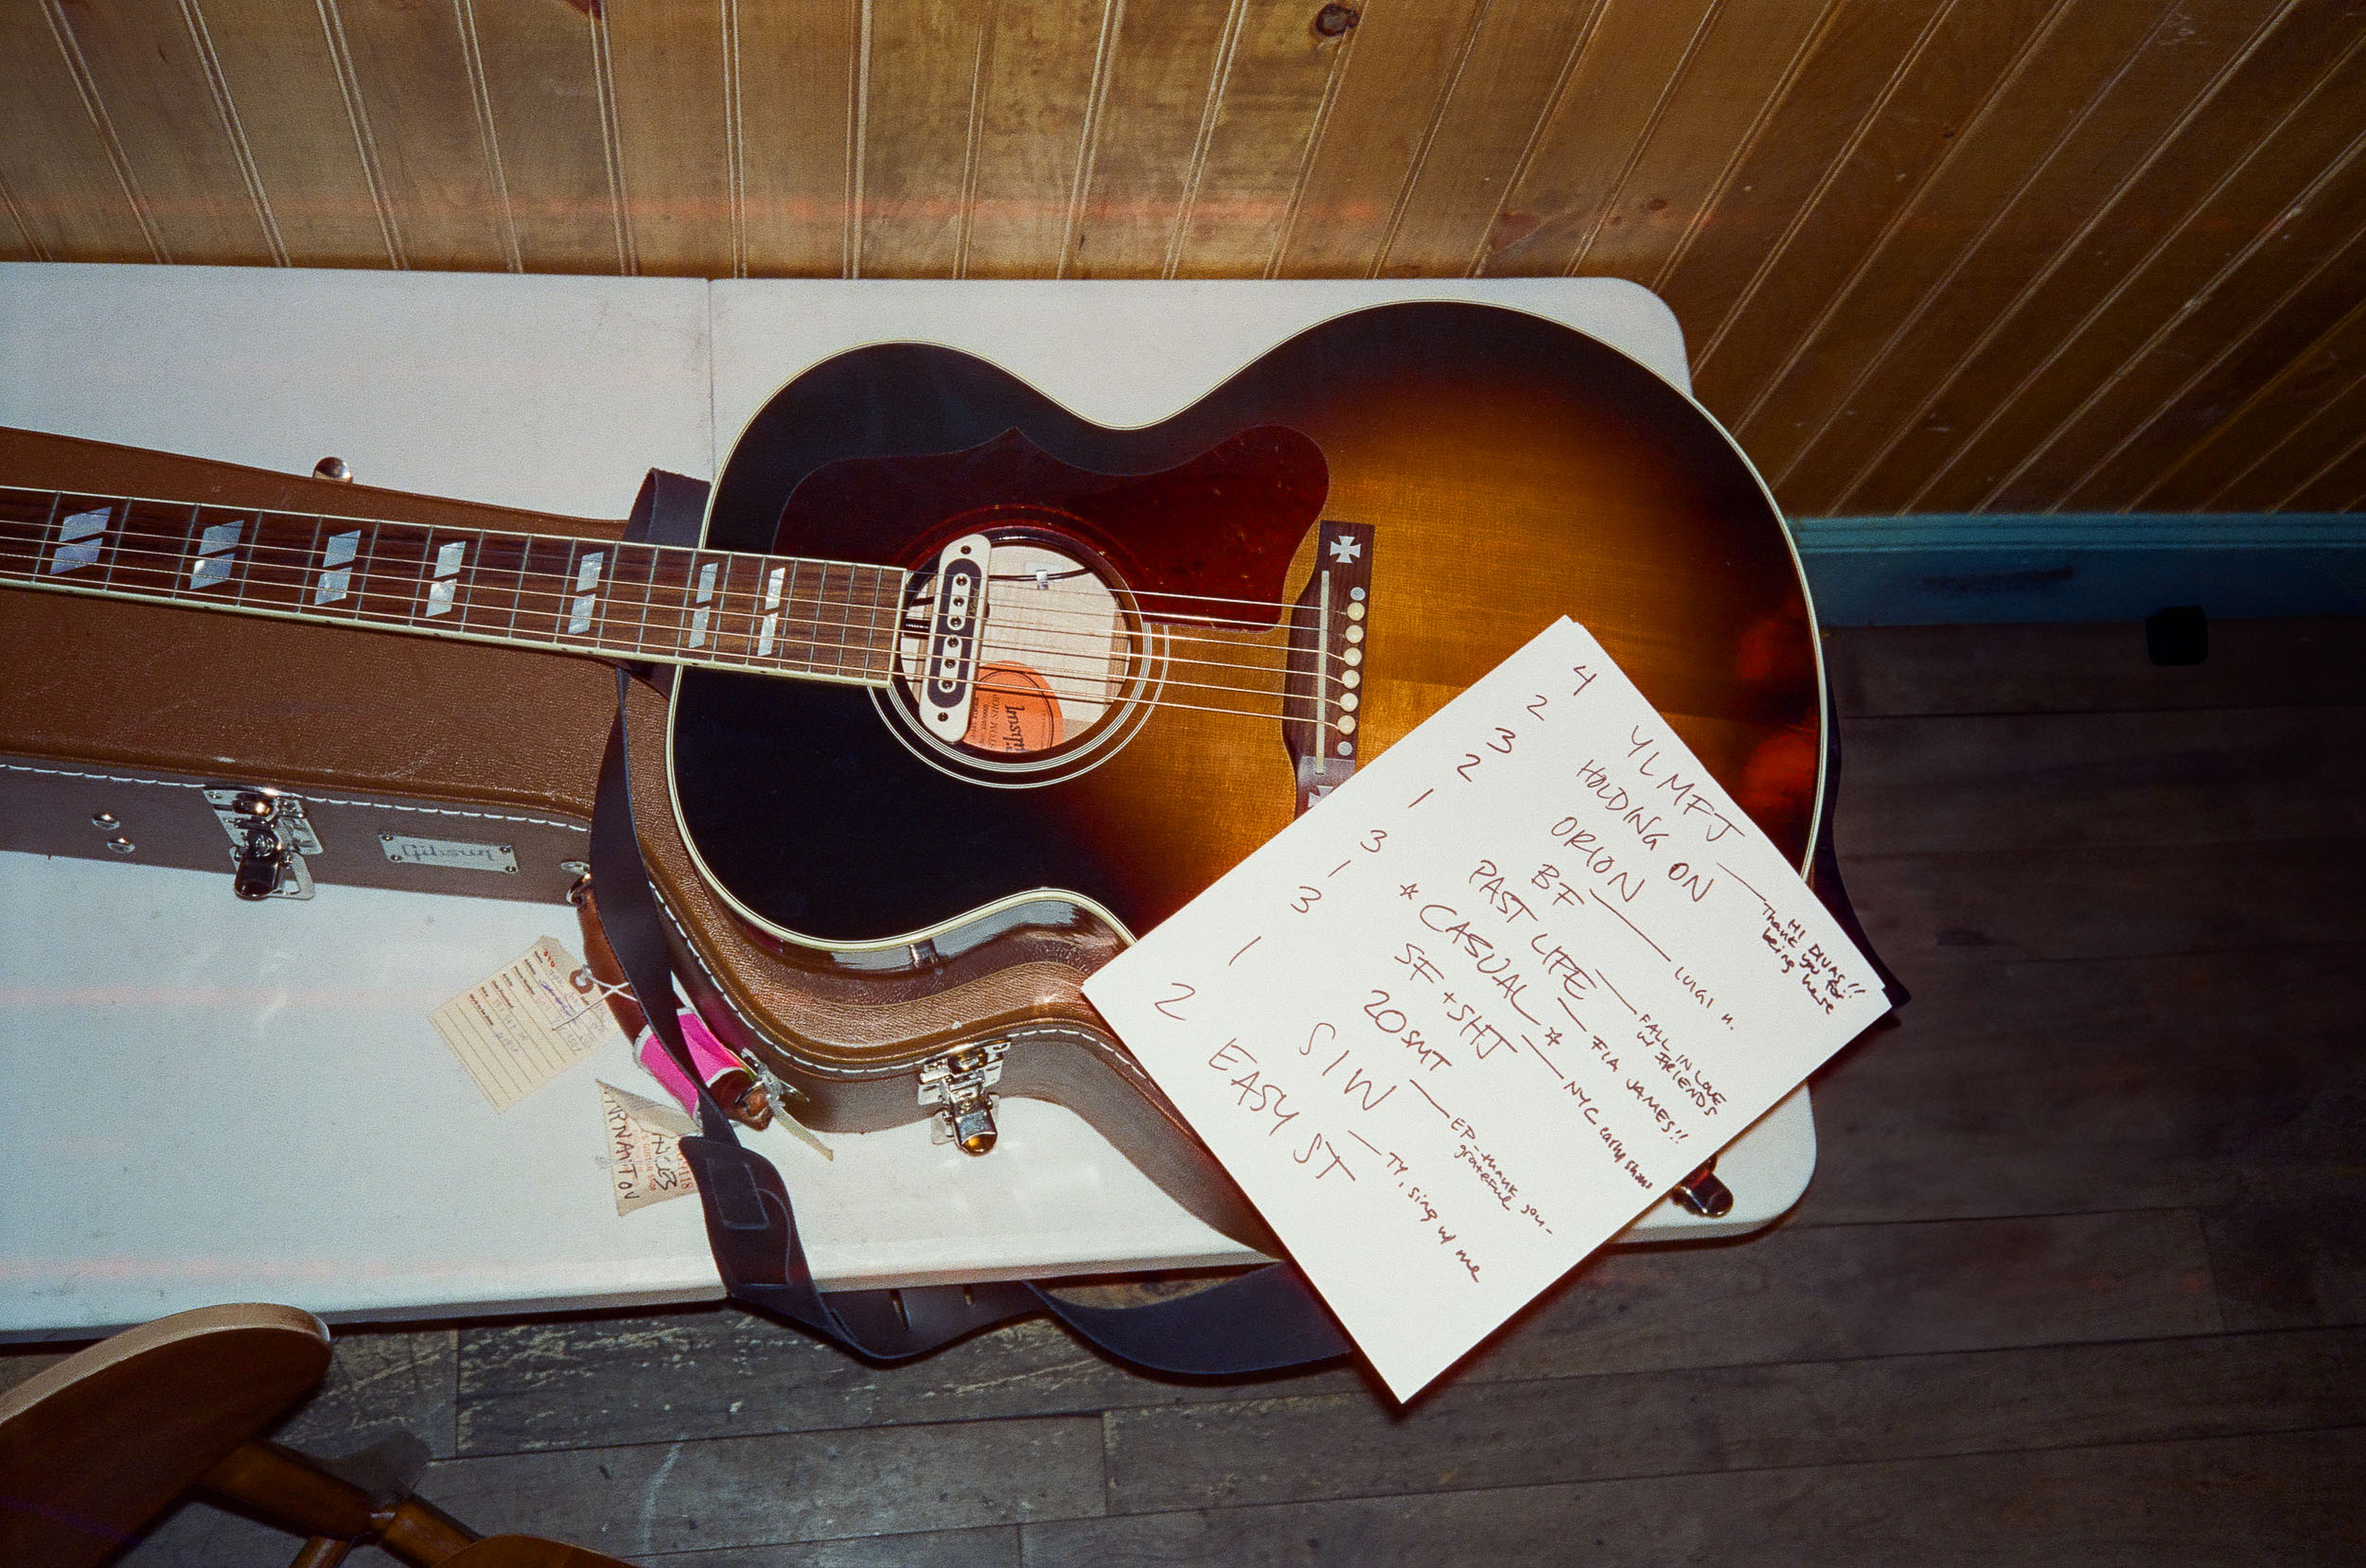 4 YLMFJ — HI DIVAS!!
2 HOLDING ON — Thank you for
being here
3 ORION
2 BF — LUIGI M.
1 PAST LIFE — FALL IN LOVE
W/ FRIENDS
3 * CASUAL * — FIA JAMES!!
1 SF + SHJ — NYC early show
3 20SMT — EP - thank you -
grateful
1 SIW — TY, sing w/ me
2 EASY ST
Gibson
CARNATION